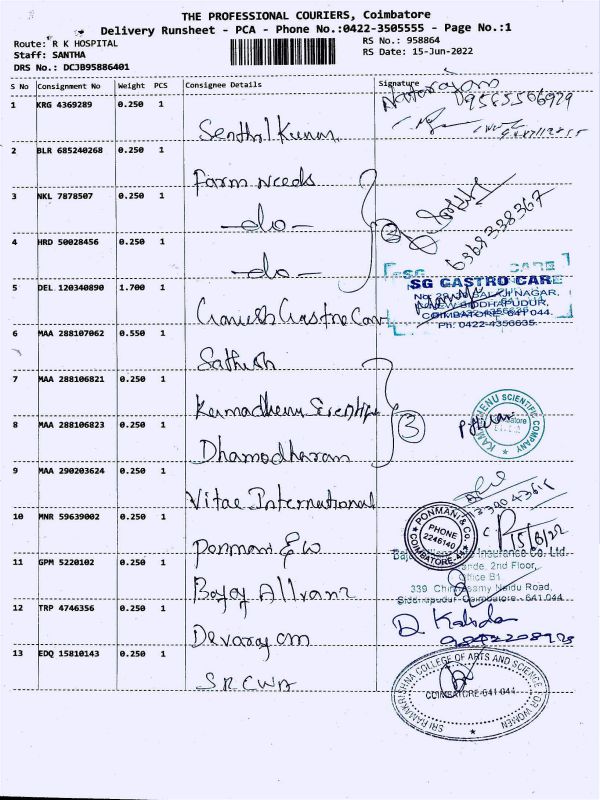 THE PROFESSIONAL COURIERS, Coimbatore
Delivery Runsheet - PCA - Phone No.:0422-3505555 - Page No.:1
Route: R K HOSPITAL
RS No.: 958864
Staff: SANTHA
RS Date: 15-Jun-2022
DRS No.: DCJB95886401
S No Consignment No Weight PCS Consignee Details Signature
Natarajan
9585506929
1 KRG 4369289 0.250 1
Senthil Kumar
2 BLR 685240268 0.250 1
Farm Needs
3 NKL 7878507 0.250 1
-do-
4 HRD 50028456 0.250 1
-do-
6368338367
5 DEL 120340890 1.700 1
Ganesh Gastro Care
SG GASTRO CARE
COIMBATORE-641 044.
Ph: 0422-4356635
6 MAA 288107062 0.550 1
Sathish
7 MAA 288106821 0.250 1
Kamadhenu Scientific
KAMADHENU SCIENTIFIC COMPANY
8 MAA 288106823 0.250 1
3
Dhamodharan
9 MAA 290203624 0.250 1
Vitae International
10 MNR 59639002 0.250 1
Ponmani E W
PONMANI & CO.
PHONE
2246140
COIMBATORE-44
15/6/22
11 GPM 5220102 0.250 1
Bajaj Allianz
Insurance Co. Ltd.
2nd Floor,
Office B1
339 Chinnasamy Naidu Road,
Siddhapudur Coimbatore - 641 044
12 TRP 4746356 0.250 1
Devarajan
13 EDQ 15810143 0.250 1
SRCWA
SRI RAMAKRISHNA COLLEGE OF ARTS AND SCIENCE FOR WOMEN
COIMBATORE-641 044